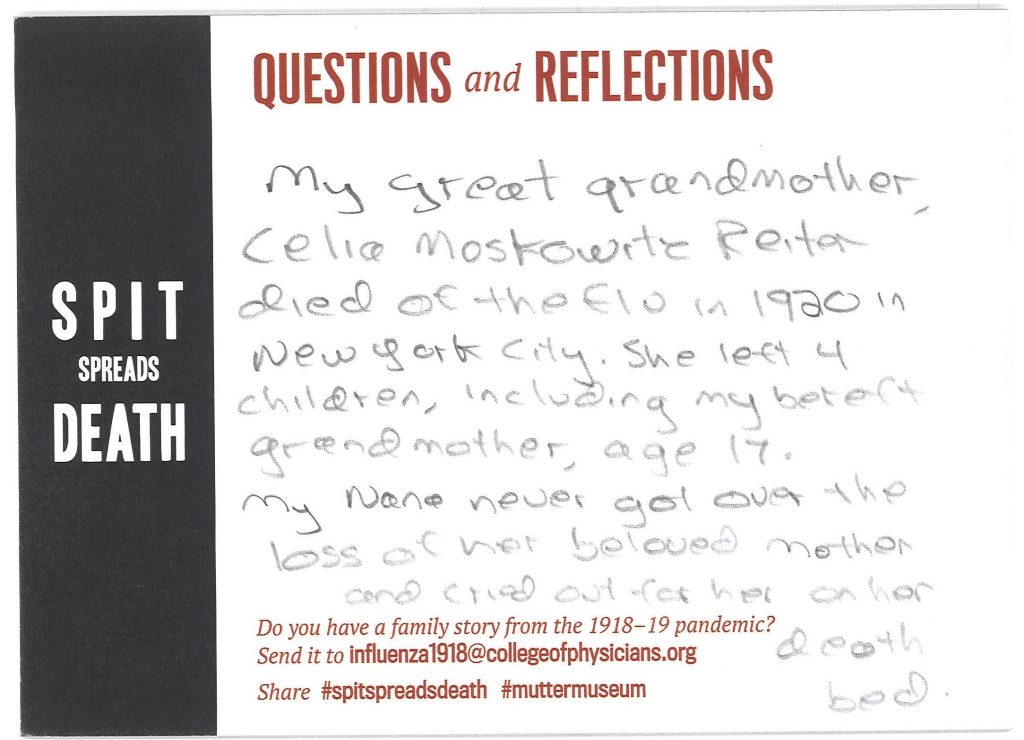 QUESTIONS and REFLECTIONS
My great grandmother,
Celia Moskowitz Reiter
died of the flu in 1920 in
New York City. She left 4
children, including my bereft
grandmother, age 17.
My Nana never got over the
loss of her beloved mother
and cried out for her on her
death
bed.
SPIT
SPREADS
DEATH
Do you have a family story from the 1918–19 pandemic?
Send it to influenza1918@collegeofphysicians.org
Share #spitspreadsdeath #muttermuseum